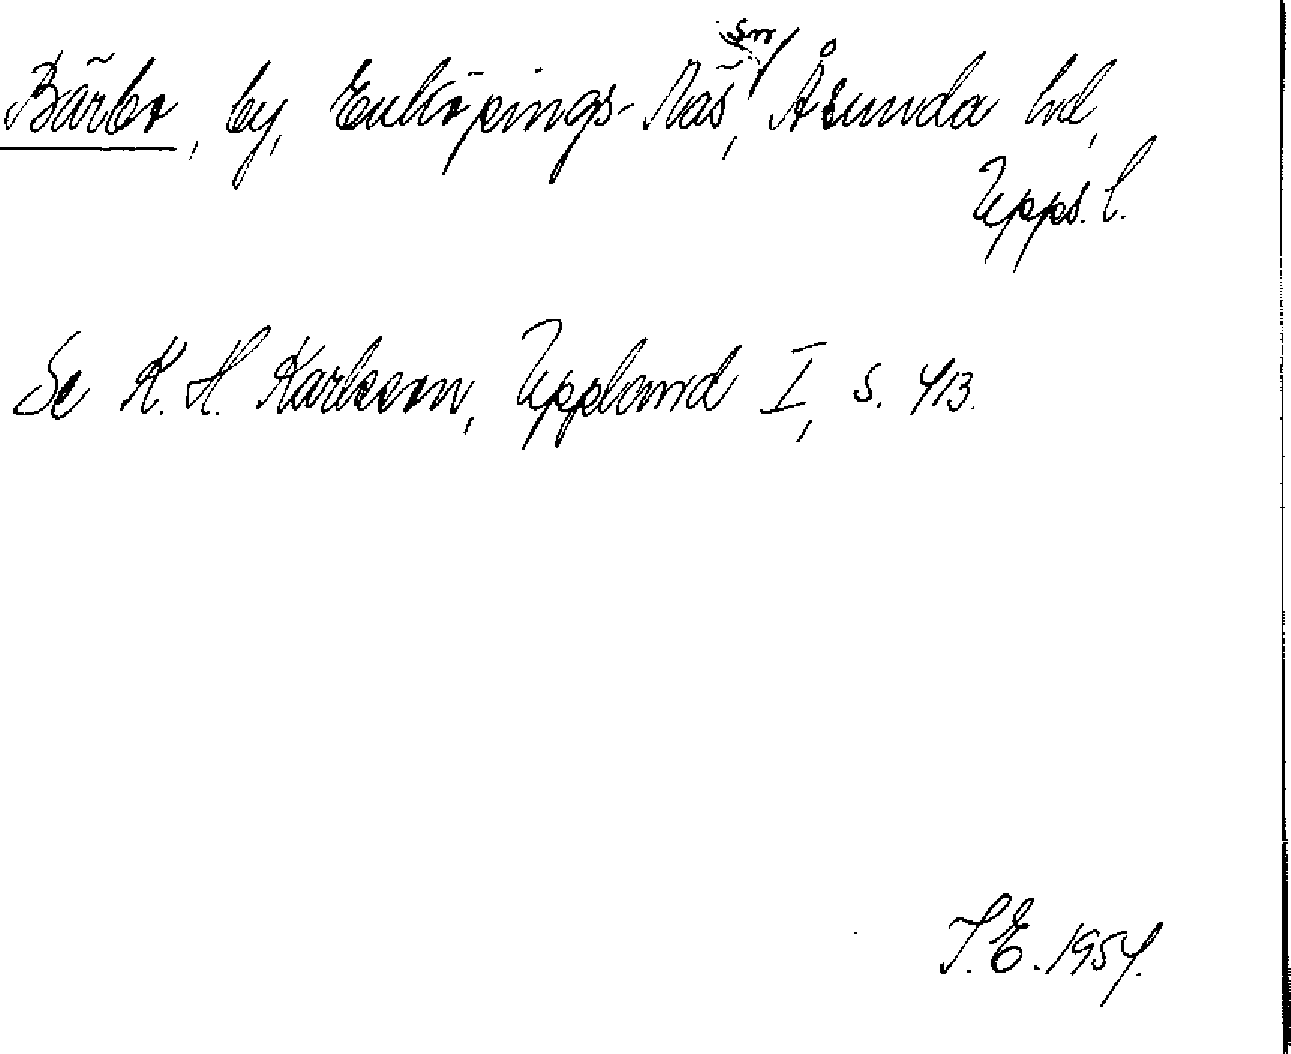 Bärbo, by, Enköpings-Näs sn, Åsunda hd,
Upps. l.
Se K. H. Karlsson, Uppland I, s. 413.
S. E. 1954.